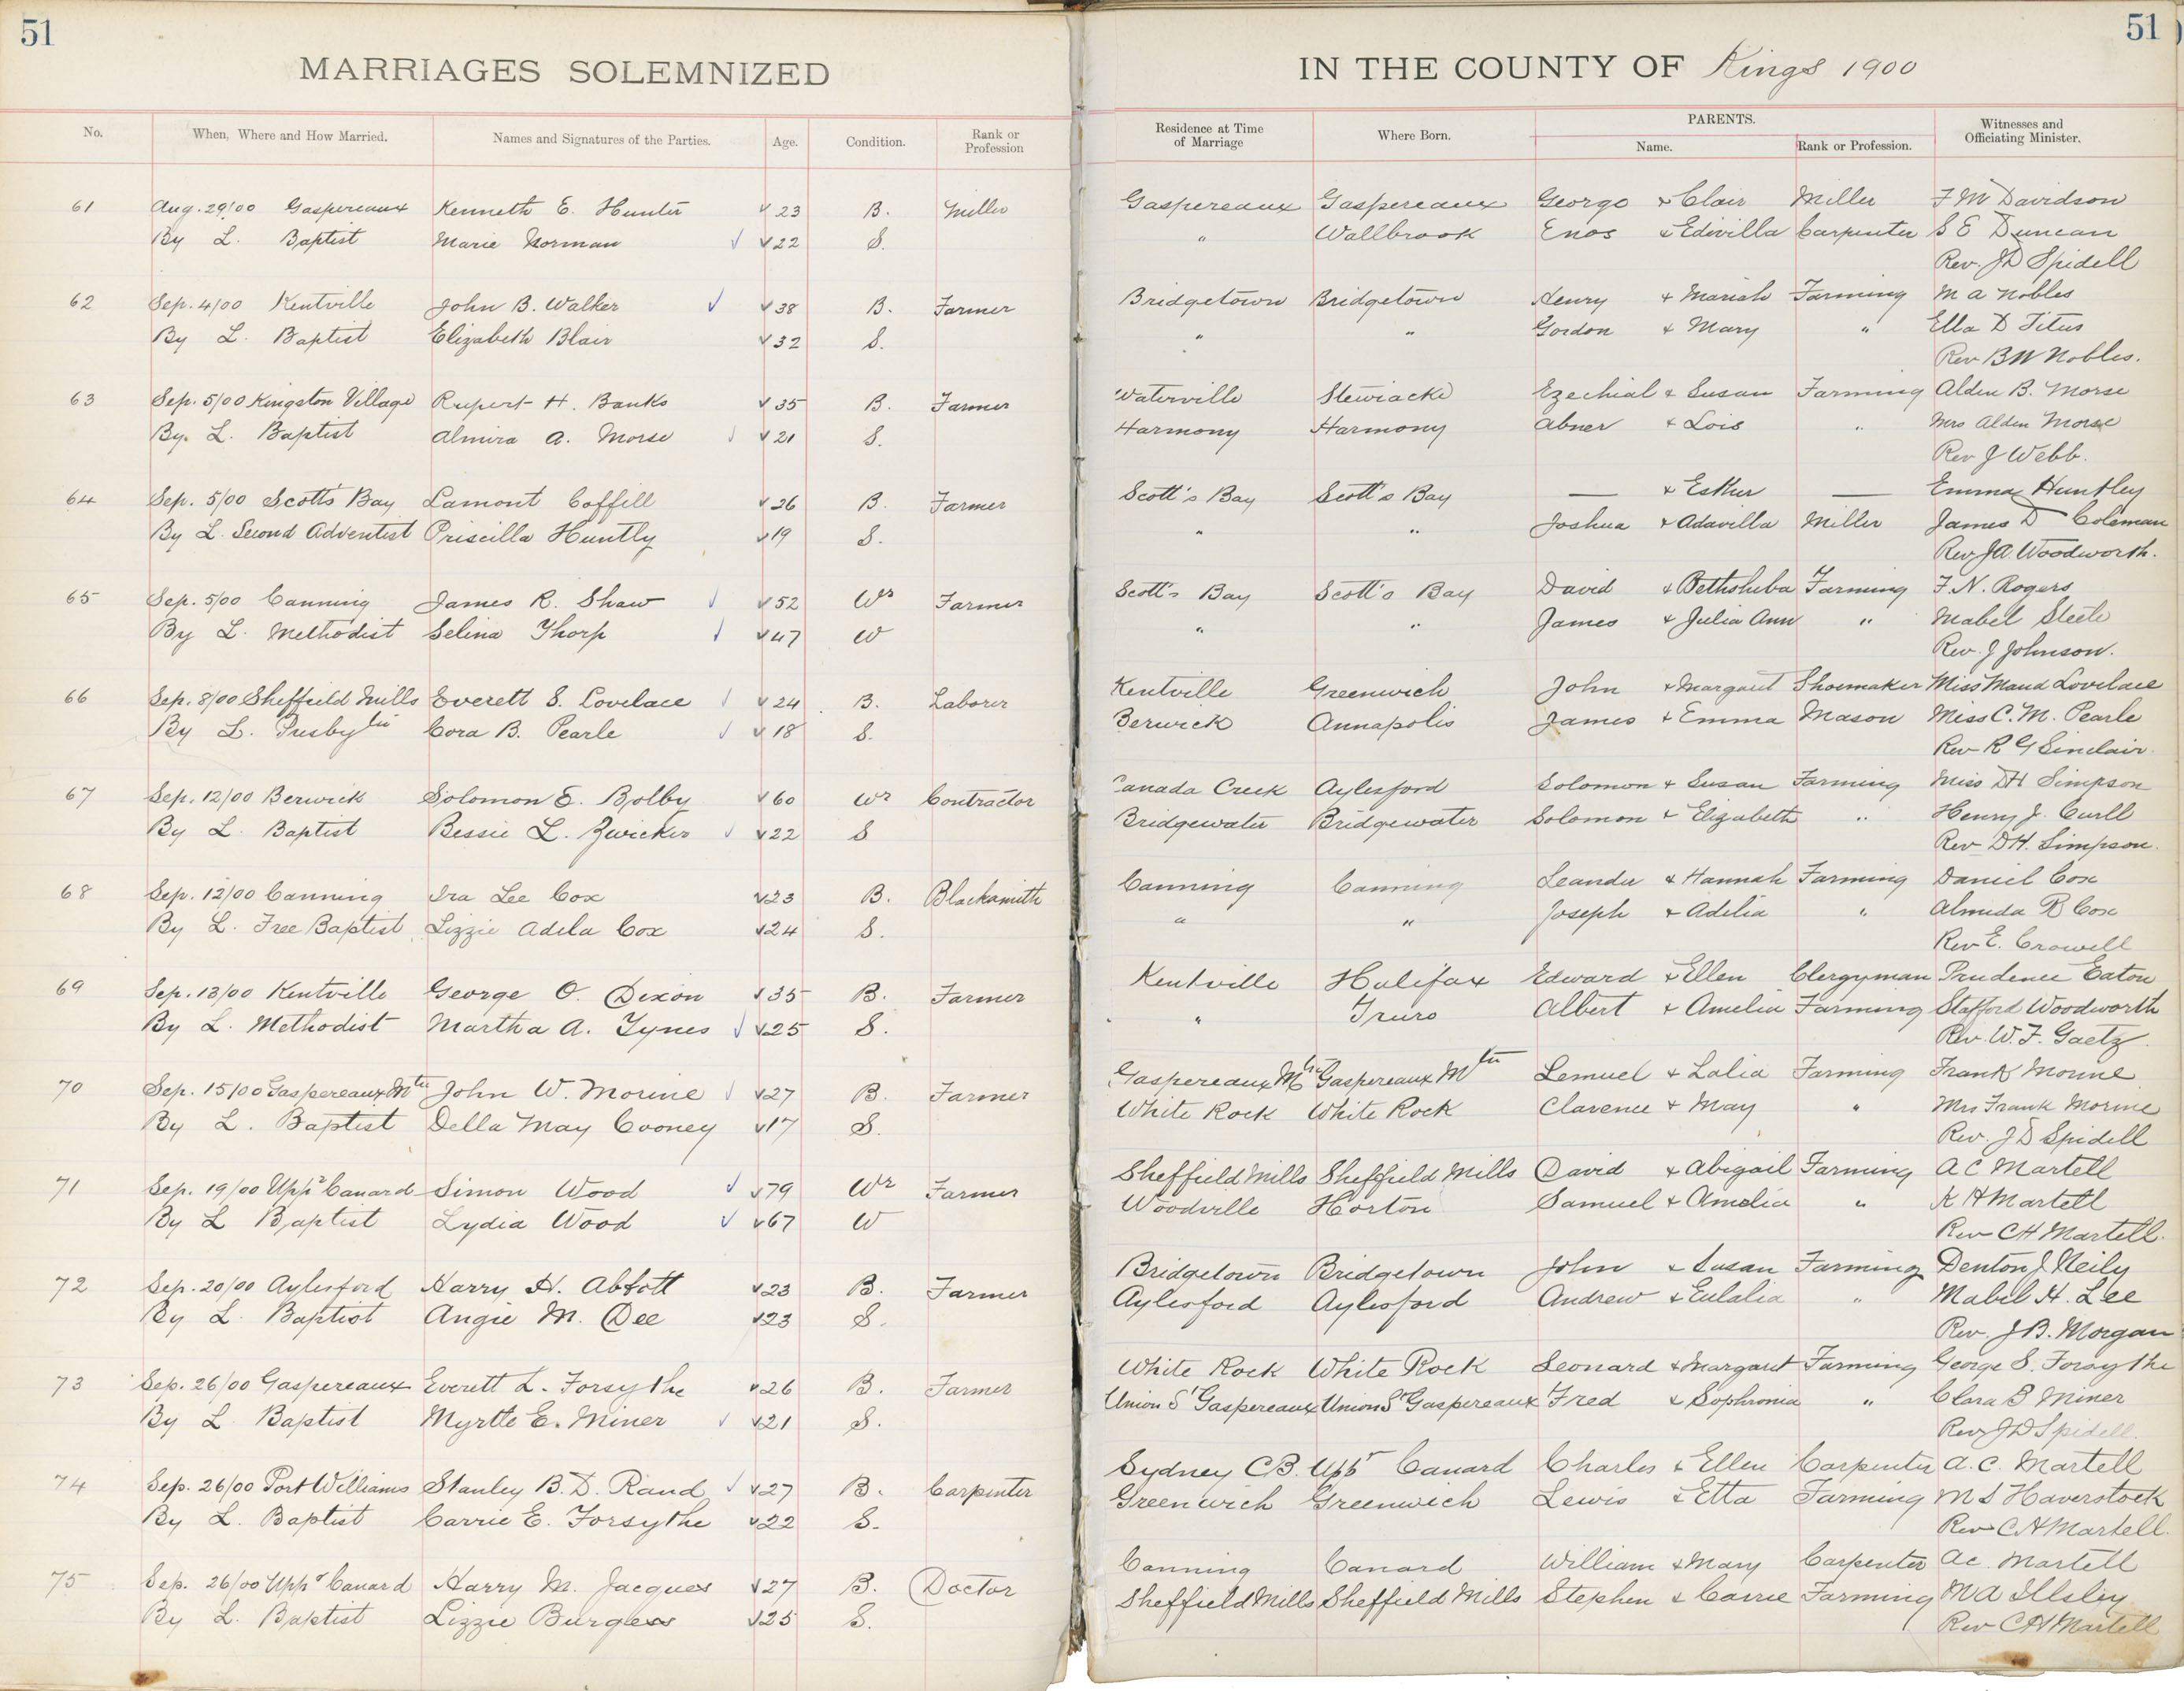 51
MARRIAGES SOLEMNIZED
No. When, Where and How Married. Names and Signatures of the Parties. Age. Condition. Rank or Profession
61 Aug. 29/00 Gaspereaux Kenneth E. Hunter 23 B. Miller
By L. Baptist Marie Norman 22 S.
62 Sep. 4/00 Kentville John B. Walker 38 B. Farmer
By L. Baptist Elizabeth Blair 32 S.
63 Sep. 5/00 Kingston Village Rupert H. Banks 35 B. Farmer
By. L. Baptist Almira A. Morse 21 S.
64 Sep. 5/00 Scott's Bay Lamont Coffill 26 B. Farmer
By L. Second Adventist Priscilla Huntly 19 S.
65 Sep. 5/00 Canning James R. Shaw 52 Wr Farmer
By L. Methodist Selina Thorp 47 W
66 Sep. 8/00 Sheffield Mills Everett S. Lovelace 24 B. Laborer
By L. Presbytin Cora B. Pearle 18 S.
67 Sep. 12/00 Berwick Solomon E. Bolby 60 Wr Contractor
By L. Baptist Bessie L. Zwicker 22 S
68 Sep. 12/00 Canning Ira Lee Cox 23 B. Blacksmith
By L. Free Baptist Lizzie Adela Cox 24 S.
69 Sep. 13/00 Kentville George O. Dixon 35 B. Farmer
By L. Methodist Martha A. Tynes 25 S.
70 Sep. 15/00 Gaspereaux Mtn John W. Morine 27 B. Farmer
By L. Baptist Della May Cooney 17 S.
71 Sep. 19/00 Uppr Canard Simon Wood 79 Wr Farmer
By L Baptist Lydia Wood 67 W
72 Sep. 20/00 Aylesford Harry H. Abbott 23 B. Farmer
By L. Baptist Angie M. Dee 23 S.
73 Sep. 26/00 Gaspereaux Everett L. Forsythe 26 B. Farmer
By L Baptist Myrtle E. Miner 21 S.
74 Sep. 26/00 Port Williams Stanley B. D. Rand 27 B. Carpenter
By L. Baptist Carrie E. Forsythe 22 S.
75 Sep. 26/00 Uppr Canard Harry M. Jacques 27 B. Doctor
By L. Baptist Lizzie Burgess 25 S.
51
IN THE COUNTY OF Kings 1900
Residence at Time of Marriage Where Born. PARENTS. Name. Rank or Profession. Witnesses and Officiating Minister.
Gaspereaux Gaspereaux George & Clair Miller F M Davidson
" Wallbrook Enos & Edivilla Carpenter S E Duncan
Rev. J D Spidell
Bridgetown Bridgetown Henry & Mariah Farming M A Nobles
" " Gordon & Mary " Ella D Titus
Rev B N Nobles.
Waterville Stewiacke Ezechial & Susan Farming Alden B. Morse
Harmony Harmony Abner & Lois " Mrs Alden Morse
Rev J Webb.
Scott's Bay Scott's Bay — & Esther — Emma Huntley
" " Joshua & Adavilla Miller James D Coleman
Rev J A Woodworth.
Scott's Bay Scott's Bay David & Bethsheba Farming F. N. Rogers
" " James & Julia Ann " Mabel Steele
Rev. J Johnson.
Kentville Greenwich John & Margaret Shoemaker Miss Maud Lovelace
Berwick Annapolis James & Emma Mason Miss C. M. Pearle
Rev R G Sinclair.
Canada Creek Aylesford Solomon & Susan Farming Miss D H Simpson
Bridgewater Bridgewater Solomon & Elizabeth " Henry J. Curll
Rev D H. Simpson.
Canning Canning Leander & Hannah Farming Daniel Cox
" " Joseph & Adelia " Almeda B Cox
Rev E. Crowell
Kentville Halifax Edward & Ellen Clergyman Prudence Eaton
" Truro Albert & Amelia Farming Stafford Woodworth
Rev. W. F. Gaetz.
Gaspereaux Mtn Gaspereaux Mtn Lemuel & Lalia Farming Frank Morine
White Rock White Rock Clarence & May " Mrs Frank Morine
Rev. J D Spidell
Sheffield Mills Sheffield Mills David & Abigail Farming A C Martell
Woodville Horton Samuel & Amelia " K H Martell
Rev C H Martell.
Bridgetown Bridgetown John & Susan Farming Denton J Neily
Aylesford Aylesford Andrew & Eulalia " Mabel H. Lee
Rev. J B. Morgan
White Rock White Rock Leonard & Margaret Farming George S. Forsythe
Union St Gaspereaux Union St Gaspereaux Fred & Sophronia " Clara B Miner
Rev J D Spidell.
Sydney C.B. Uppr Canard Charles & Ellen Carpenter A. C. Martell
Greenwich Greenwich Lewis & Etta Farming M S Haverstock
Rev C H Martell.
Canning Canard William & Mary Carpenter A C. Martell
Sheffield Mills Sheffield Mills Stephen & Carrie Farming M A Illsley
Rev C H Martell